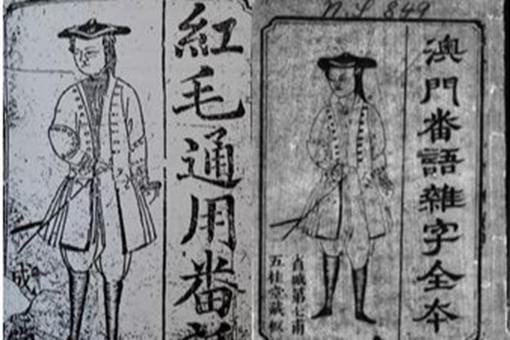 紅毛通用番
成
n.S 849
澳門番語雜字全本
省城第七甫
五桂堂藏板